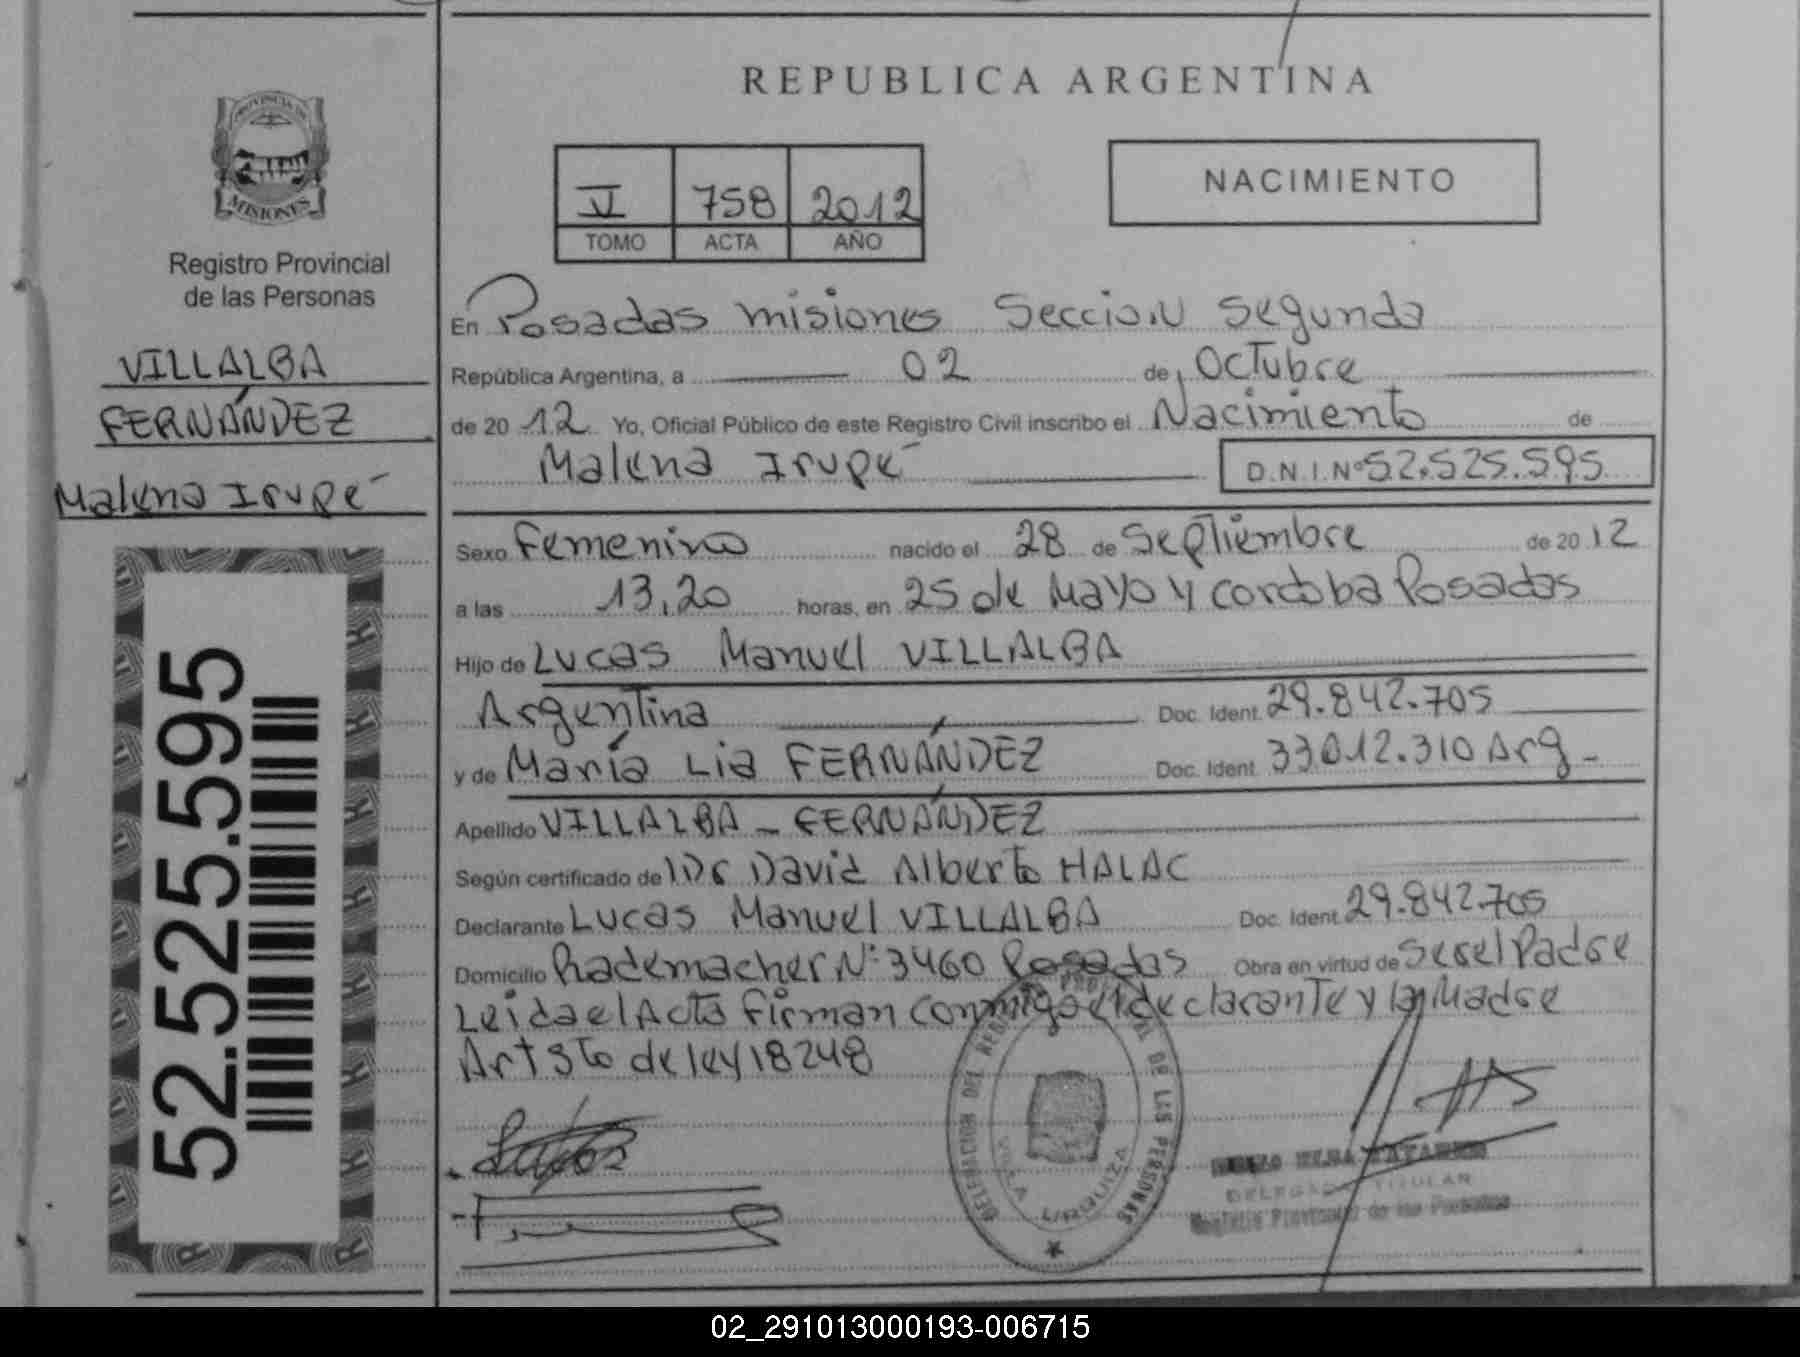 PROVINCIA DE
MISIONES
Registro Provincial
de las Personas
VILLALBA
FERNÁNDEZ
Malena Irupé
52.525.595
REPUBLICA ARGENTINA
V 758 2012
TOMO ACTA AÑO
NACIMIENTO
En Posadas Misiones Seccion Segunda
República Argentina, a 02 de Octubre
de 20 12 Yo, Oficial Público de este Registro Civil inscribo el Nacimiento de
Malena Irupé D.N.I.Nº 52.525.595
Sexo Femenino nacido el 28 de Septiembre de 20 12
a las 13,20 horas, en 25 de Mayo y Cordoba Posadas
Hijo de Lucas Manuel VILLALBA
Argentina Doc. Ident. 29.842.705
y de María Lia FERNÁNDEZ Doc. Ident. 33.012.310 Arg-
Apellido VILLALBA - FERNÁNDEZ
Según certificado de Dr David Alberto HALAC
Declarante Lucas Manuel VILLALBA Doc. Ident. 29.842.705
Domicilio Rademacher Nº 3460 Posadas Obra en virtud de Ser el Padre
Leida el Acta firman conmigo el declarante y la Madre
Art 5to de ley 18248
DELEGACION DEL REGISTRO PROVINCIAL DE LAS PERSONAS
VILLA URQUIZA
DELEGADO TITULAR
Registro Provincial de las Personas
02_291013000193-006715